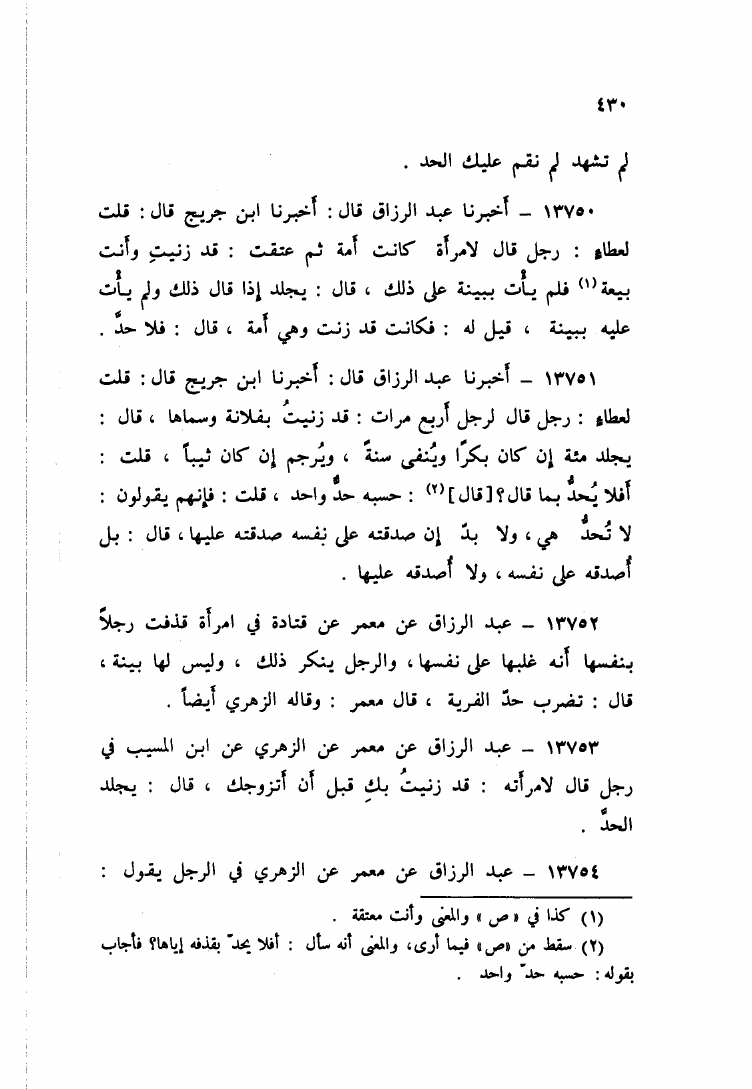 ٤٣٠
لم تشهد لم نقم عليك الحد .
١٣٧٥٠ – أخبرنا عبد الرزاق قال : أخبرنا ابن جريج قال : قلت
لعطاء : رجل قال لامرأة كانت أمة ثم عتقت : قد زنيتِ وأنت
بيعة (١) فلم يأْت ببينة على ذلك ، قال : يجلد إذا قال ذلك ولم يأْت
عليه ببينة ، قيل له : فكانت قد زنت وهي أمة ، قال : فلا حدَّ .
١٣٧٥١ – أخبرنا عبد الرزاق قال : أخبرنا ابن جريج قال : قلت
لعطاء : رجل قال لرجل أربع مرات : قد زنيتُ بفلانة وسماها ، قال :
يجلد مئة إن كان بكرًا ويُنفى سنةً ، ويُرجم إن كان ثيباً ، قلت :
أفلا يُحدُّ بما قال؟ [قال] (٢) : حسبه حدٌّ واحد ، قلت : فإنهم يقولون :
لا تُحدُّ هي ، ولا بدّ إن صدقته على نفسه صدقته عليها ، قال : بل
أُصدقه على نفسه ، ولا أُصدقه عليها .
١٣٧٥٢ – عبد الرزاق عن معمر عن قتادة في امرأة قذفت رجلاً
بنفسها أنه غلبها على نفسها ، والرجل ينكر ذلك ، وليس لها بينة ،
قال : تضرب حدّ الفرية ، قال معمر : وقاله الزهري أيضاً .
١٣٧٥٣ – عبد الرزاق عن معمر عن الزهري عن ابن المسيب في
رجل قال لامرأته : قد زنيتُ بكِ قبل أن أتزوجك ، قال : يجلد
الحدَّ .
١٣٧٥٤ – عبد الرزاق عن معمر عن الزهري في الرجل يقول :
(١) كذا في «ص» والمعنى وأنت معتقة .
(٢) سقط من «ص» فيما أرى، والمعنى أنه سأل : أفلا يحدّ بقذفه إياها؟ فأجاب
بقوله : حسبه حدّ واحد .